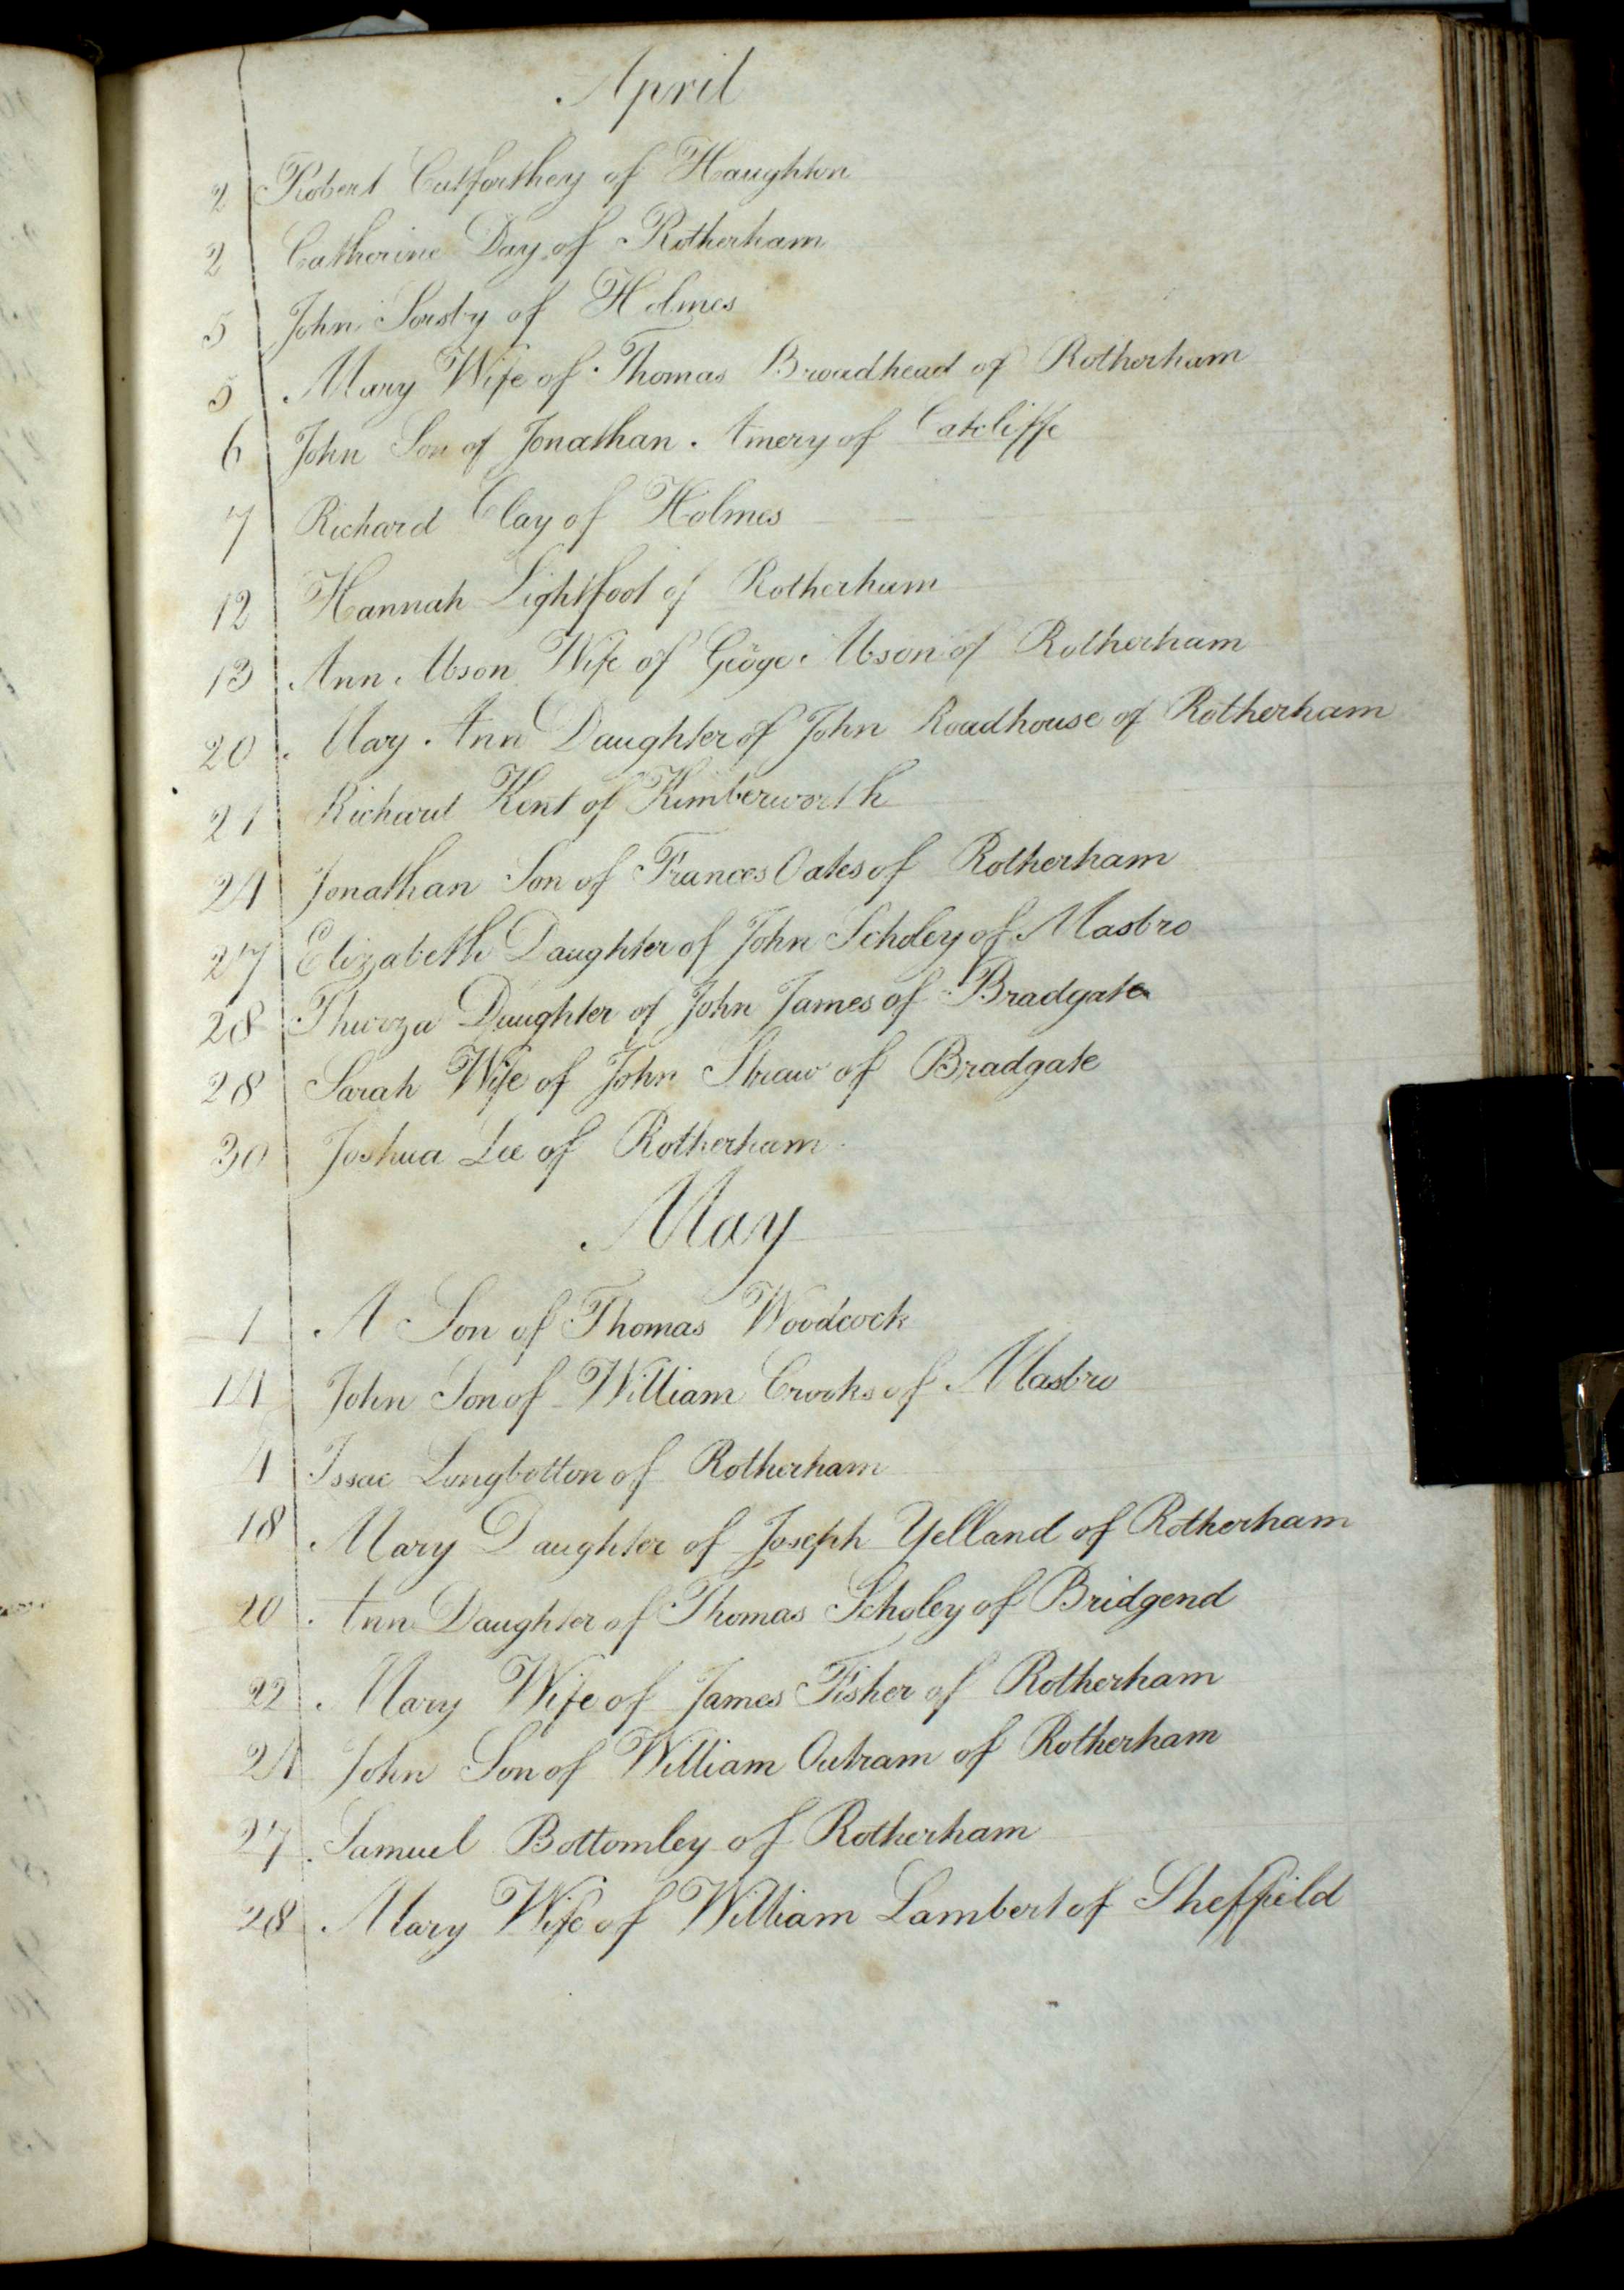 April
2 Robert Cutforthey of Haughton
2 Catherine Day of Rotherham
5 John Sorsby of Holmes
5 Mary Wife of Thomas Broadhead of Rotherham
6 John Son of Jonathan Amery of Catcliffe
7 Richard Clay of Holmes
12 Hannah Lightfoot of Rotherham
13 Ann Ibson Wife of Geoge Ibson of Rotherham
20 Mary Ann Daughter of John Roadhouse of Rotherham
21 Richard Kent of Kimberworth
24 Jonathan Son of Frances Oates of Rotherham
27 Elizabeth Daughter of John Scholey of Masbro
28 Thurza Daughter of John James of Bradgate
28 Sarah Wife of John Straw of Bradgate
30 Joshua Lee of Rotherham
May
1 A Son of Thomas Woodcock
14 John Son of William Crooks of Masbro
4 Issac Longbotton of Rotherham
18 Mary Daughter of Joseph Yelland of Rotherham
20 Ann Daughter of Thomas Scholey of Bridgend
22 Mary Wife of James Fisher of Rotherham
24 John Son of William Outram of Rotherham
27 Samuel Bottomley of Rotherham
28 Mary Wife of William Lambert of Sheffield